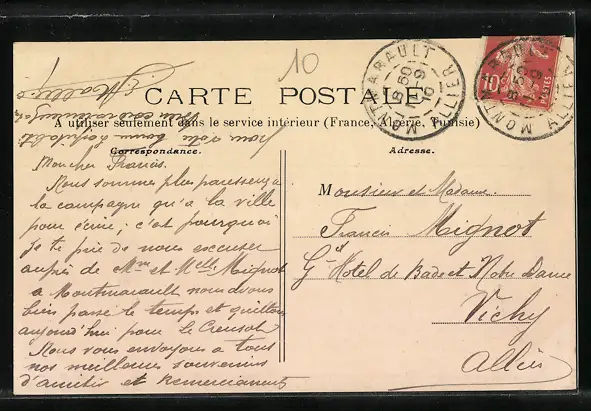 10
CARTE POSTALE
A utiliser seulement dans le service intérieur (France, Algérie, Tunisie)
Correspondance.
Adresse.
MONTMARAULT
8 50
7 - 9
10
ALLIER
MONTMARAULT
8 50
7 - 9
ALLIER
10c
POSTES
Mon cher Francis.
Nous sommes plus paresseux à
la campagne qu'a la ville
pour écrire; c'est pourquoi
je te prie de nous excuser
auprès de Mme et Melle Mignot
a Montmarault nous avons
bien passé le temps et quittons
aujourd'hui pour le Creusot
Nous vous envoyons a tous
nos meilleurs souvenirs
d'amitié et remerciements
pour votre bonne hospitalité
Monsieur et Madame.
Francis Mignot
Gd Hotel de Bade et Notre Dame
Vichy
Allier